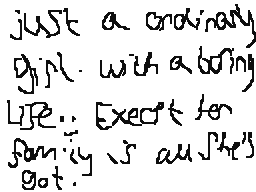 just a ordinary
girl. with a boring
LIFE.. Except for
family is all she's
got.